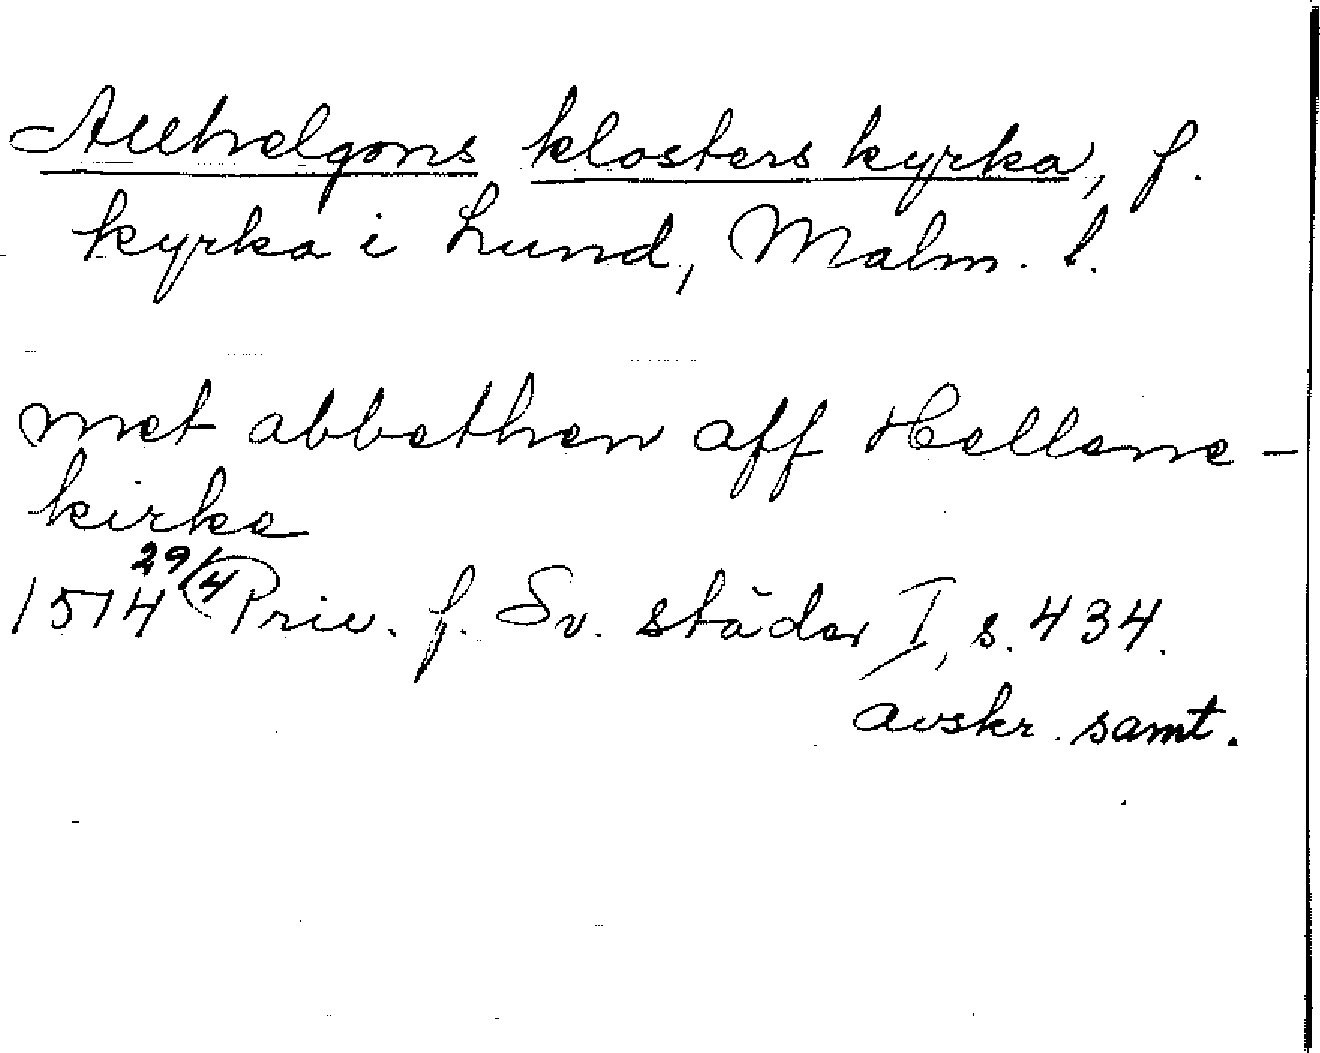 Allhelgons klosters kyrka, f.
kyrka i Lund, Malm. l.
met abbethen aff Hellene-
kirke
1514 29/4 Priv. f. Sv. städer I, s. 434.
avskr. samt.